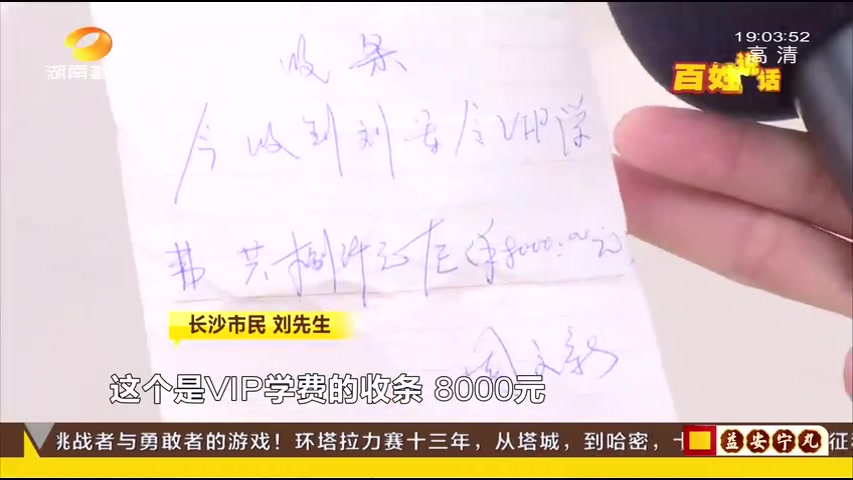 19:03:52
高清
湖南
百姓说话
收条
今收到刘军令VIP学
费 共捌仟元正(¥8000.00元).
周文新
长沙市民 刘先生
这个是VIP学费的收条 8000元
挑战者与勇敢者的游戏！环塔拉力赛十三年，从塔城，到哈密，十
益安宁丸
征